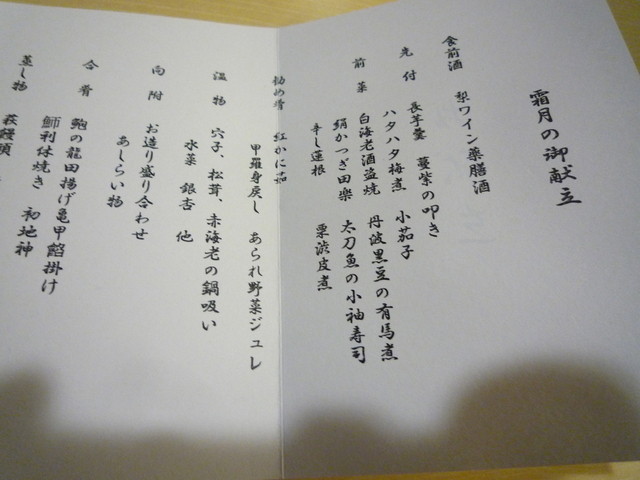 霜月の御献立
食前酒 梨ワイン薬膳酒
先付 長芋羹 蔓紫の叩き
ハタハタ梅煮 小茄子
前菜 白海老酒盗焼 丹波黒豆の有馬煮
絹かつぎ田楽 太刀魚の小袖寿司
辛し蓮根 栗渋皮煮
勧め肴 紅かに
甲羅身戻し あられ野菜ジュレ
温物 穴子、松茸、赤海老の鍋吸い
水菜 銀杏 他
向附 お造り盛り合わせ
あしらい物
合肴 鮑の龍田揚げ亀甲餡掛け
鰤利休焼き 初地神
蒸し物 萩饅頭